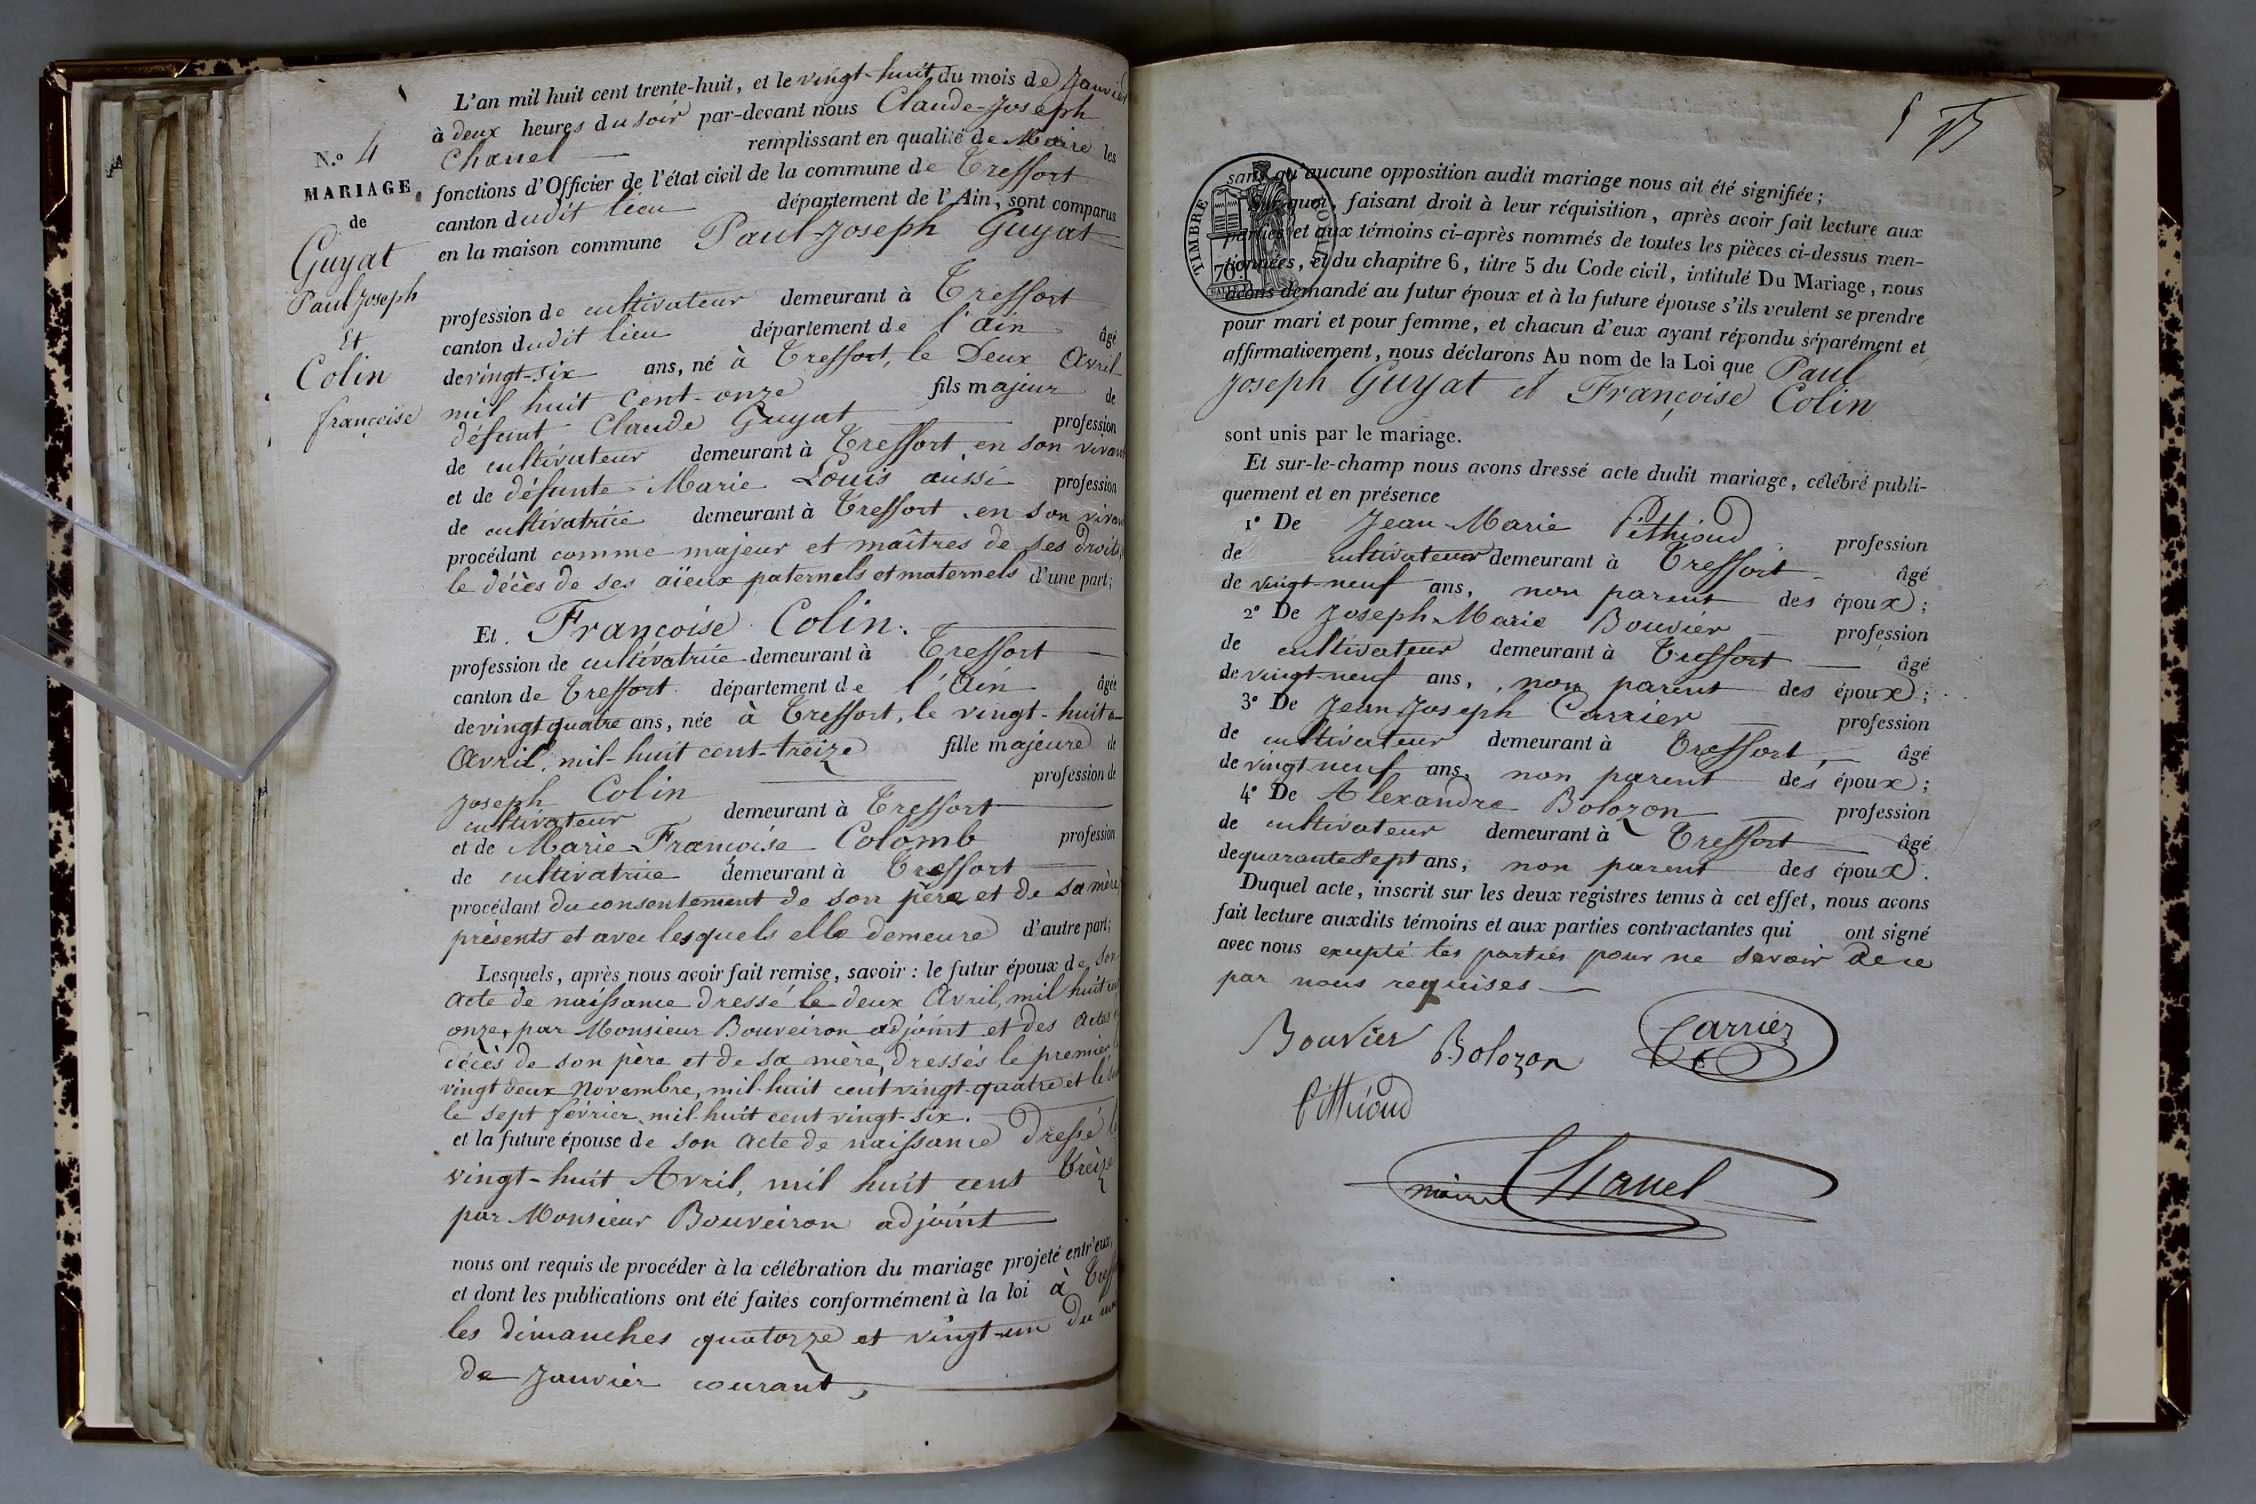 N.° 4
MARIAGE
de
Guyat
Paul Joseph
Et
Colin
françoise
L'an mil huit cent trente-huit, et le vingt-huit du mois de Janvier
à deux heures du soir par-devant nous Claude-Joseph
Chanel remplissant en qualité de Maire les
fonctions d'Officier de l'état civil de la commune de Treffort
canton dudit lieu département de l'Ain, sont comparus
en la maison commune Paul-Joseph Guyat
profession de cultivateur demeurant à Treffort
canton dudit lieu département de l'Ain âgé
de vingt-six ans, né à Treffort, le Deux Avril
mil huit cent-onze fils majeur de
défunt Claude Guyat profession
de cultivateur demeurant à Treffort en son vivant
et de défunte Marie Louis aussi profession
de cultivatrice demeurant à Treffort en son vivant
procédant comme majeur et maîtres de ses droits,
le décès de ses aïeux paternels et maternels d'une part;
Et Françoise Colin.
profession de cultivatrice demeurant à Treffort
canton de Treffort département de l'Ain âgée
de vingt quatre ans, née à Treffort, le vingt-huit
Avril, mil-huit cent-treize fille majeure de
Joseph Colin profession de
cultivateur demeurant à Treffort
et de Marie-Françoise Colomb profession
de cultivatrice demeurant à Treffort
procédant du consentement de son père et de sa mère
présents et avec lesquels elle demeure d'autre part;
Lesquels, après nous avoir fait remise, savoir : le futur époux de son
acte de naissance dressé le deux Avril, mil huit cent
onze, par Monsieur Bouveiron adjoint et des Actes
décès de son père et de sa mère, dressés le premier
vingt deux Novembre, mil-huit cent vingt-quatre et le
le sept février mil-huit cent vingt-six.
et la future épouse de son acte de naissance dressé le
vingt-huit Avril, mil huit cent treize
par Monsieur Bouveiron adjoint
nous ont requis de procéder à la célébration du mariage projeté entr'eux,
et dont les publications ont été faites conformément à la loi à Treffort
les dimanches quatorze et vingt-un du mois
de Janvier courant,
TIMBRE ROYAL
70
sans qu'aucune opposition audit mariage nous ait été signifiée;
Sur quoi, faisant droit à leur réquisition, après avoir fait lecture aux
parties et aux témoins ci-après nommés de toutes les pièces ci-dessus men-
tionnées, et du chapitre 6, titre 5 du Code civil, intitulé Du Mariage, nous
avons demandé au futur époux et à la future épouse s'ils veulent se prendre
pour mari et pour femme, et chacun d'eux ayant répondu séparément et
affirmativement, nous déclarons Au nom de la Loi que Paul
Joseph Guyat et Françoise Colin
sont unis par le mariage.
Et sur-le-champ nous avons dressé acte dudit mariage, célébré publi-
quement et en présence
1° De Jean-Marie Pithioud profession
de cultivateur demeurant à Treffort âgé
de vingt-neuf ans, non parent des époux;
2° De Joseph-Marie Bouvier profession
de cultivateur demeurant à Treffort âgé
de vingt-neuf ans, non parent des époux;
3° De Jean Joseph Carrier profession
de cultivateur demeurant à Treffort, âgé
de vingt neuf ans, non parent des époux;
4° De Alexandre Bolozon profession
de cultivateur demeurant à Treffort âgé
de quarante sept ans, non parent des époux.
Duquel acte, inscrit sur les deux registres tenus à cet effet, nous avons
fait lecture auxdits témoins et aux parties contractantes qui ont signé
avec nous excepté les parties pour ne savoir de ce
par nous requises
Bouvier Bolozon Carrier
Pithioud
maire Chanel